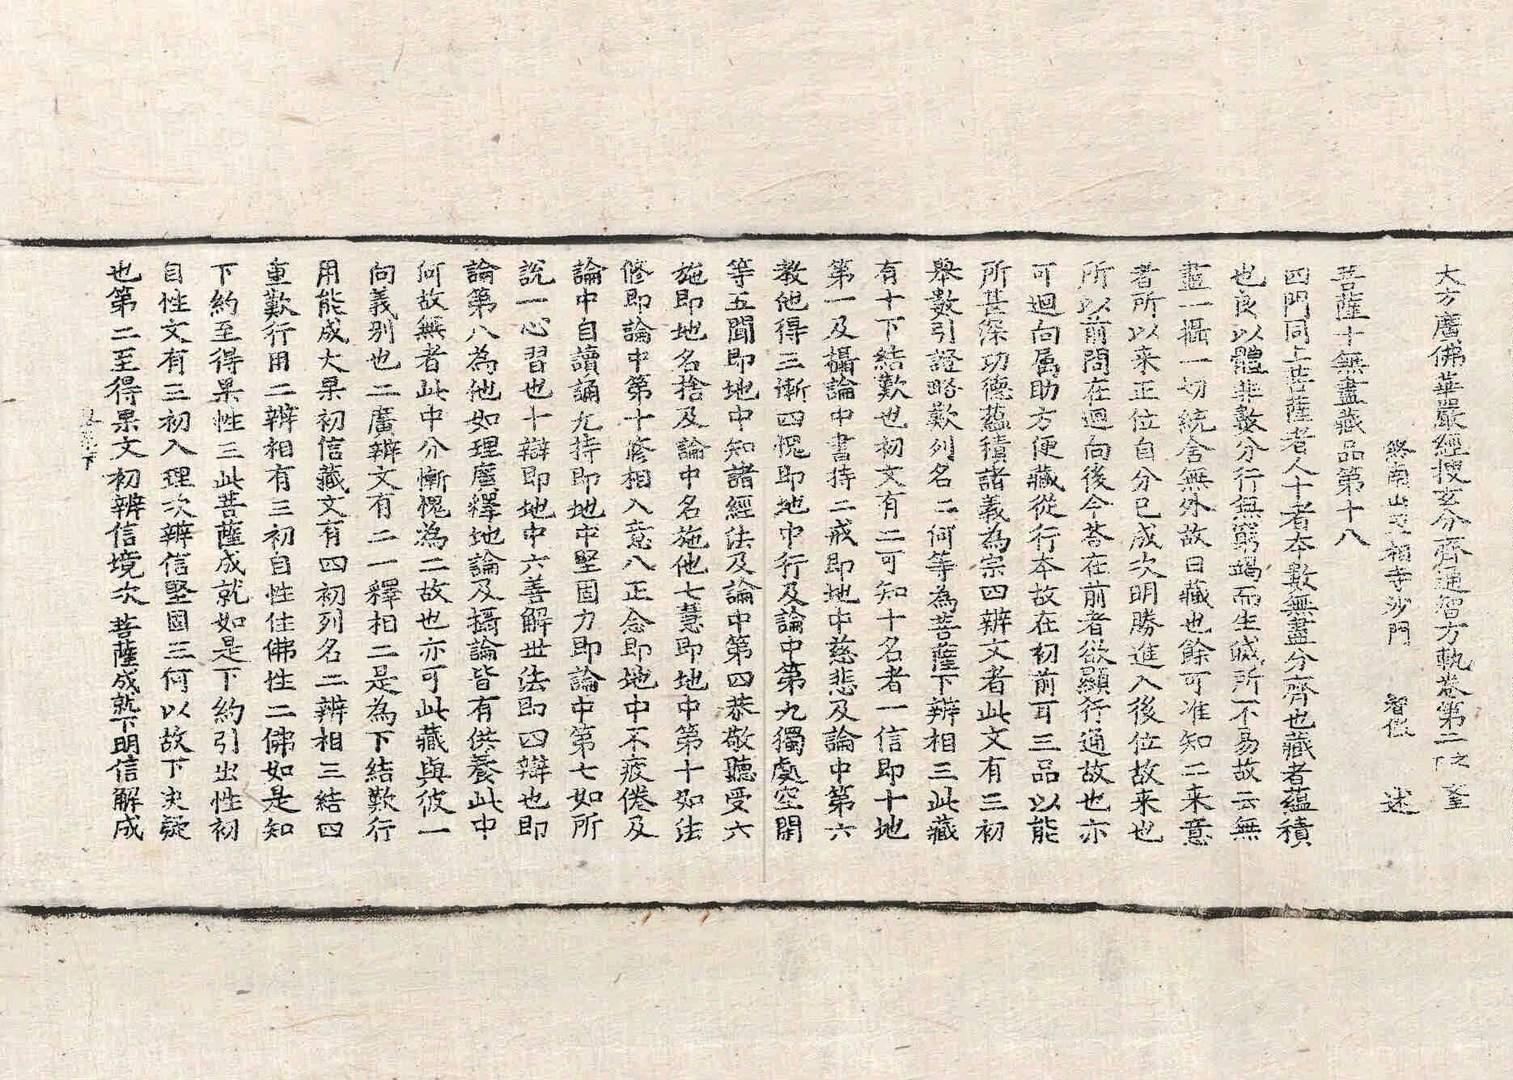 大方廣佛華嚴經搜玄分齊通智方軌卷第二之
終南山至相寺沙門 智儼 述
菩薩十無盡藏品第十八
四門同上菩薩者人十者本數無盡分齊也藏者蘊積
也良以體非數分行無窮竭而生藏所不易故云無
盡一攝一切統含無外故曰藏也餘可准知二来意
者所以来正位自分已成次明勝進入後位故来也
所以前問在迴向後今荅在前者欲顯行通故也亦
可迴向属助方便藏從行本故在初前耳三品以能
所甚深功德蘊積諸義為宗四辨文者此文有三初
舉數引證略歎列名二何等為菩薩下辨相三此藏
有十下結歎也初文有二可知十名者一信即十地
第一及攝論中書持二戒即地中慈悲及論中第六
教他得三慚四愧即地中行及論中第九獨處空閑
等五聞即地中知諸經法及論中第四恭敬聽受六
施即地名捨及論中名施他七慧即地中第十如法
修即論中第十修相入意八正念即地中不疲倦及
論中自讀誦九持即地中堅固力即論中第七如所
說一心習也十辯即地中六善解世法即四辯也即
論第八為他如理廣釋地論及攝論皆有供養此中
何故無者此中分慚愧為二故也亦可此藏與彼一
向義別也二廣辨文有二一釋相二是為下結歎行
用能成大果初信藏文有四初列名二辨相三結四
重歎行用二辨相有三初自性住佛性二佛如是知
下約至得果性三此菩薩成就如是下約引出性初
自性文有三初入理次辨信堅固三何以故下决疑
也第二至得果文初辨信境次菩薩成就下明信解成